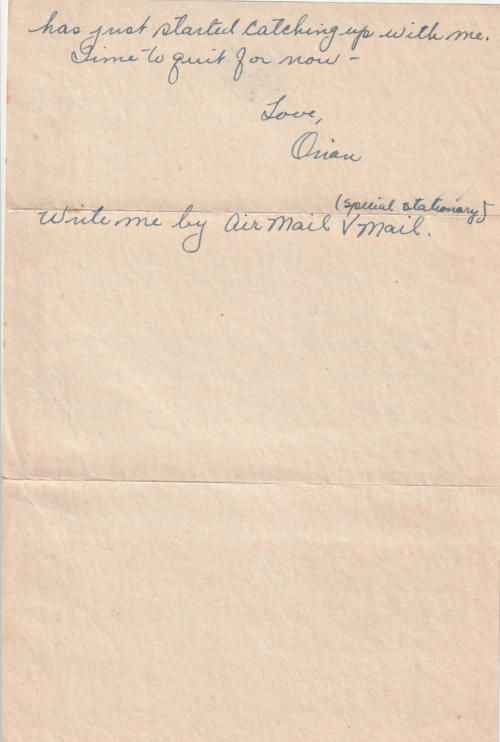 has just started catching up with me.
Time to quit for now -
Love,
Orian
(special stationary)
Write me by Air Mail V Mail.